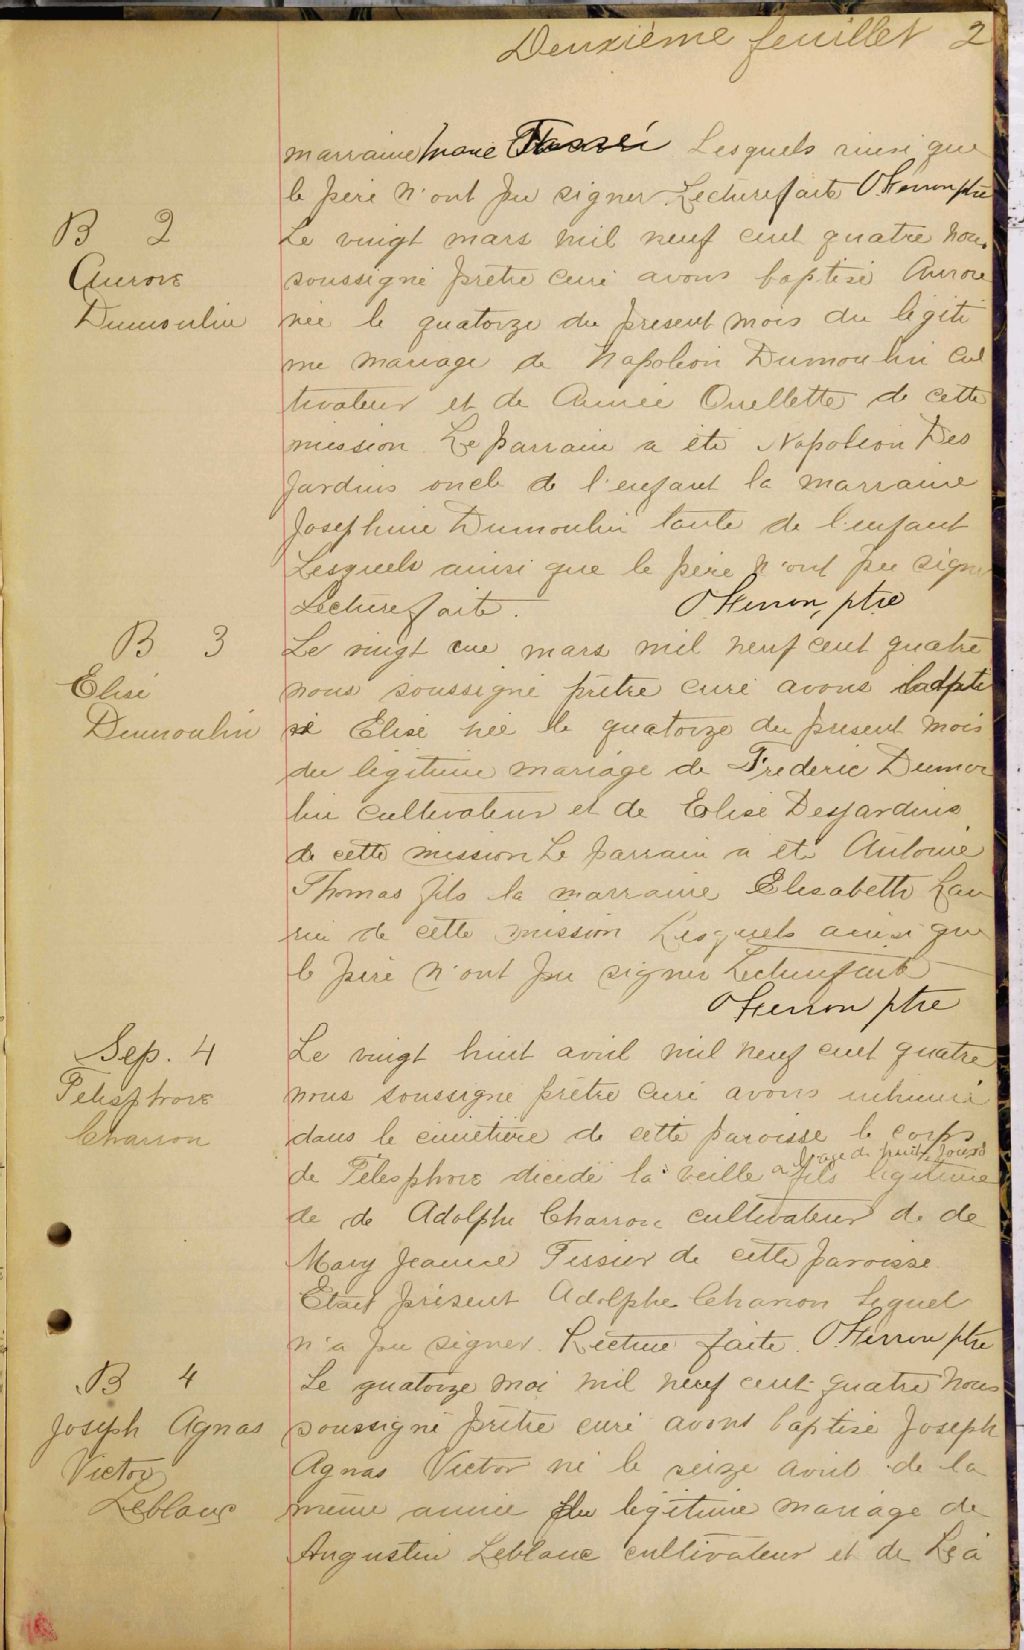 Deuxième feuillet 2
marraine Marie Lesquels ainsi que
le père n'ont pu signer. Lecture faite O Ferron ptre
B 2
Aurore
Dumoulin
Le vingt mars mil neuf cent quatre nous
soussigné prêtre curé avons baptisé Aurore
née le quatorze du présent mois du légiti
me mariage de Napoléon Dumoulin cul
tivateur et de Aimée Ouellette de cette
mission. Le parrain a été Napoléon Des
jardins oncle de l'enfant la marraine
Josephine Dumoulin tante de l'enfant
Lesquels ainsi que le père n'ont pu signer
Lecture faite. O Ferron, ptre
B 3
Elisé
Dumoulin
Le vingt une mars mil neuf cent quatre
nous soussigné prêtre curé avons bapti
sé Elisé née le quatorze du présent mois
du légitime mariage de Frederic Dumou
lin cultivateur et de Elise Desjardins
de cette mission Le parrain a été Antoine
Thomas fils la marraine Elisabeth Lau
rin de cette mission Lesquels ainsi que
le père n'ont pu signer Lecture faite
O Ferron ptre
Sep. 4
Télesphore
Charron
Le vingt huit avril mil neuf cent quatre
nous soussigné prêtre curé avons inhumé
dans le cimetière de cette paroisse le corps
de Télesphore décédé la veille a l'age de huit jours fils légitime
de de Adolphe Charron cultivateur de de
Mary Jeanne Tessier de cette paroisse
Etait présent Adolphe Charron lequel
n'a pu signer. Lecture faite. O Ferron ptre
B 4
Joseph Agnas
Victor
Leblanc
Le quatorze mai mil neuf cent quatre nous
soussigné prêtre curé avons baptisé Joseph
Agnas Victor né le seize avril de la
même année du légitime mariage de
Augustin Leblanc cultivateur et de Léa